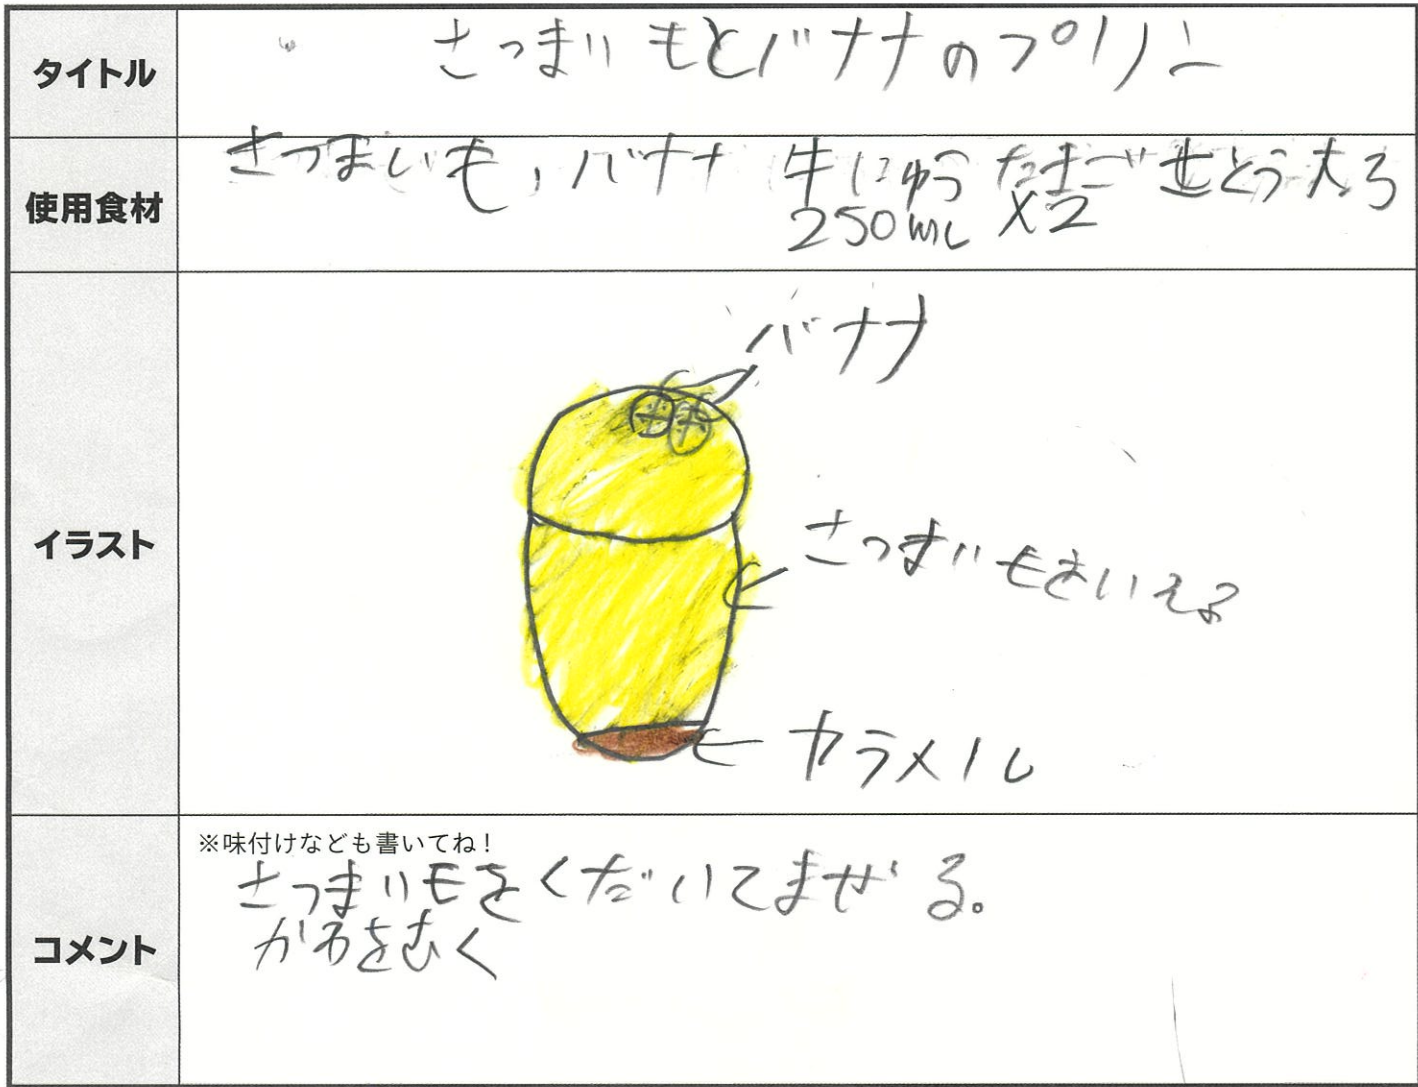 タイトル
さつまいもとバナナのプリン
使用食材
さつまいも,バナナ 牛にゅう たまご さとう大さ
250mL ×2
イラスト
バナナ
さつまいもをいれる
カラメル
コメント
※味付けなども書いてね！
さつまいモをくだいてまぜる。
かわをむく